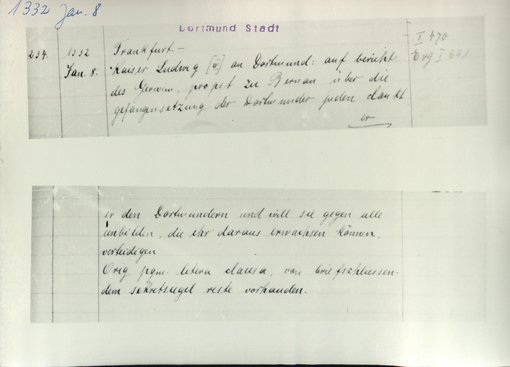 1332 Jan. 8
Dortmund Stadt
234. 1332 Frankfurt - I 470
Jan. 8. Kaiser Ludwig an Dortmund: auf bericht Orig I
des Gerwin, propst zu Bernau über die
gefangensetzung der Dortmunder juden dankt
er
er den Dortmundern und will sie gegen alle
unbilden, die ihr daraus erwachsen können,
verteidigen
Orig pgm. litera clausa, von briefschliessen-
dem sekretsiegel reste vorhanden.